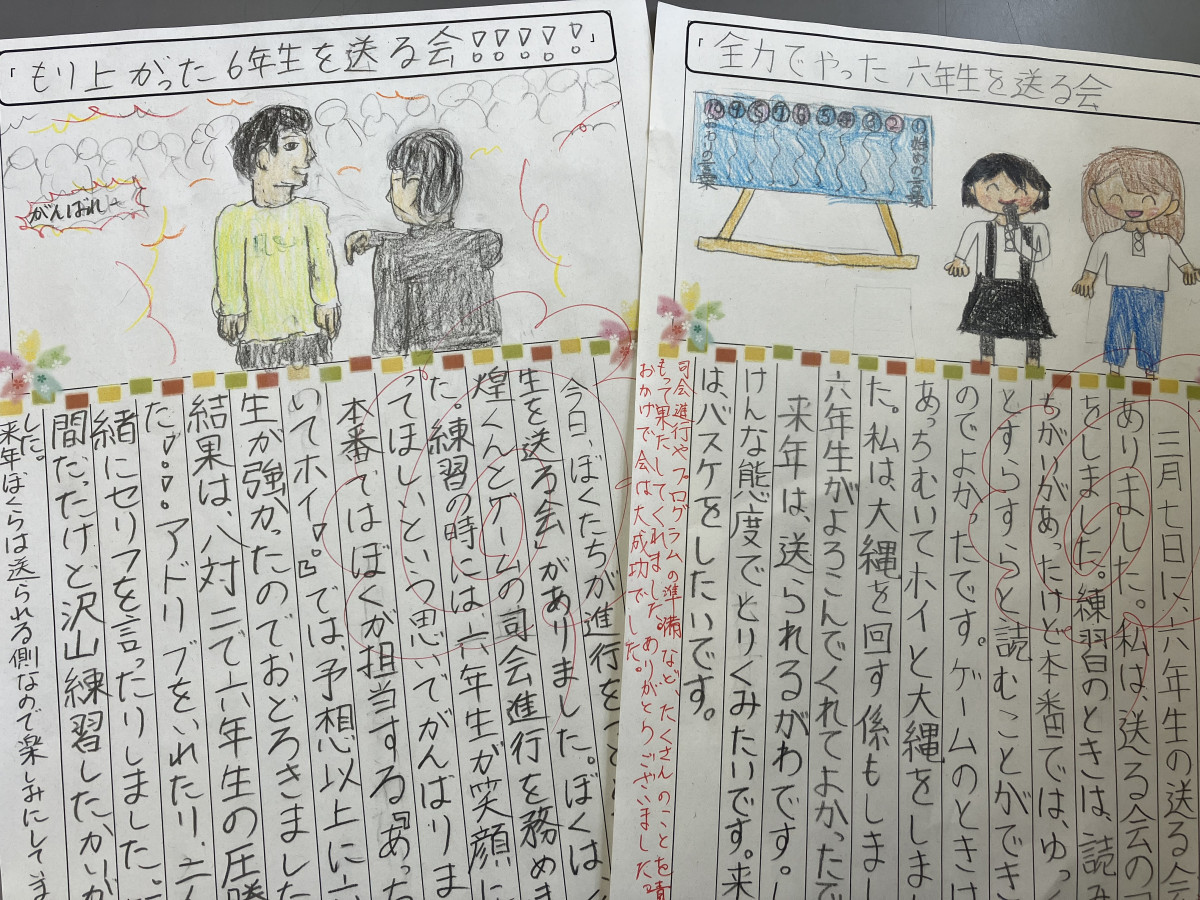 「もり上がった6年生を送る会!!!!!」
がんばれ〜
今日、ぼくたちが進行を
生を送る会」がありました。ぼくは、
煌くんとゲームの司会進行を務めま
た。練習の時には六年生が笑顔に
ってほしいという思いでがんばりま
本番ではぼくが担当する『あっち
いてホイ!』では、予想以上に六
生が強かったのでおどろきました
結果は、八対二で六年生の圧勝
た!!!アドリブをいれたり、二人
緒にセリフを言ったりしました。
間だったけど沢山練習したかいが
した。
来年ぼくらは送られる側なので楽しみにしていま
「全力でやった六年生を送る会
始めの言葉
②
③
④
⑤
⑥
⑦
⑧
⑨
⑩
おわりの言葉
三月七日に、六年生の送る会
ありました。私は、送る会の
をしました。練習のときは、読み
ちがいがあったけど本番では、ゆっく
とすらすらと読むことができ
のでよかったです。ゲームのときは
あっちむいてホイと大縄をしまし
た。私は、大縄を回す係もしまし
六年生がよろこんでくれてよかったで
来年は、送られるがわです。し
けんな態度でとりくみたいです。来
は、バスケをしたいです。
司会進行やプログラムの準備など、たくさんのことを責
もって果たしてくれました。ありがとうございました。
おかげで会は大成功でした。